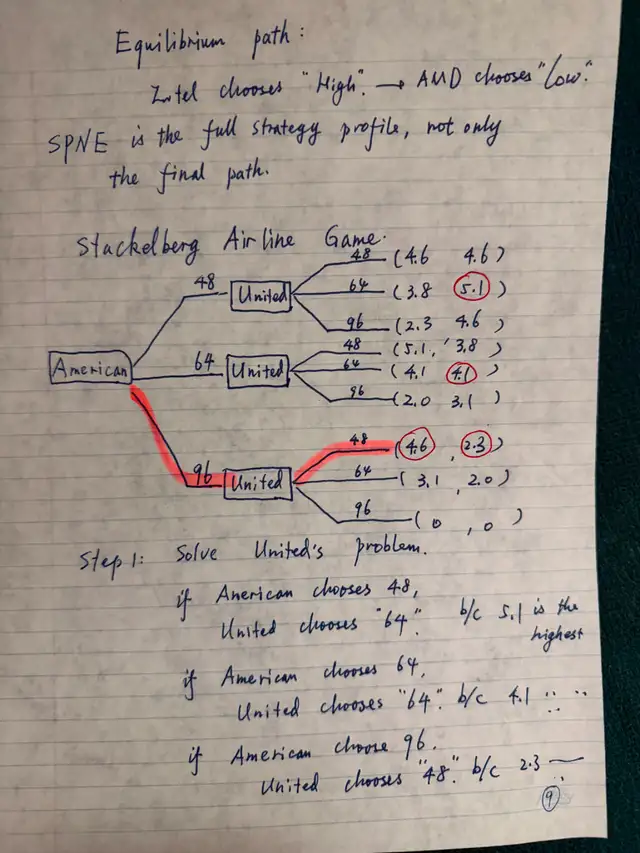 Equilibrium path:
Intel chooses "High". → AMD chooses "Low".
SPNE is the full strategy profile, not only
the final path.
Stackelberg Airline Game.
48 (4.6 4.6)
48 United 64 (3.8 5.1)
96 (2.3 4.6)
48 (5.1, 3.8)
American 64 United 64 (4.1 4.1)
96 (2.0 3.1)
48 (4.6, 2.3)
96 United 64 (3.1, 2.0)
96 (0, 0)
Step 1: Solve United's problem.
if American chooses 48,
United chooses "64". b/c 5.1 is the
highest
if American chooses 64,
United chooses "64". b/c 4.1 ·· ··
if American choose 96.
United chooses "48". b/c 2.3 —
9